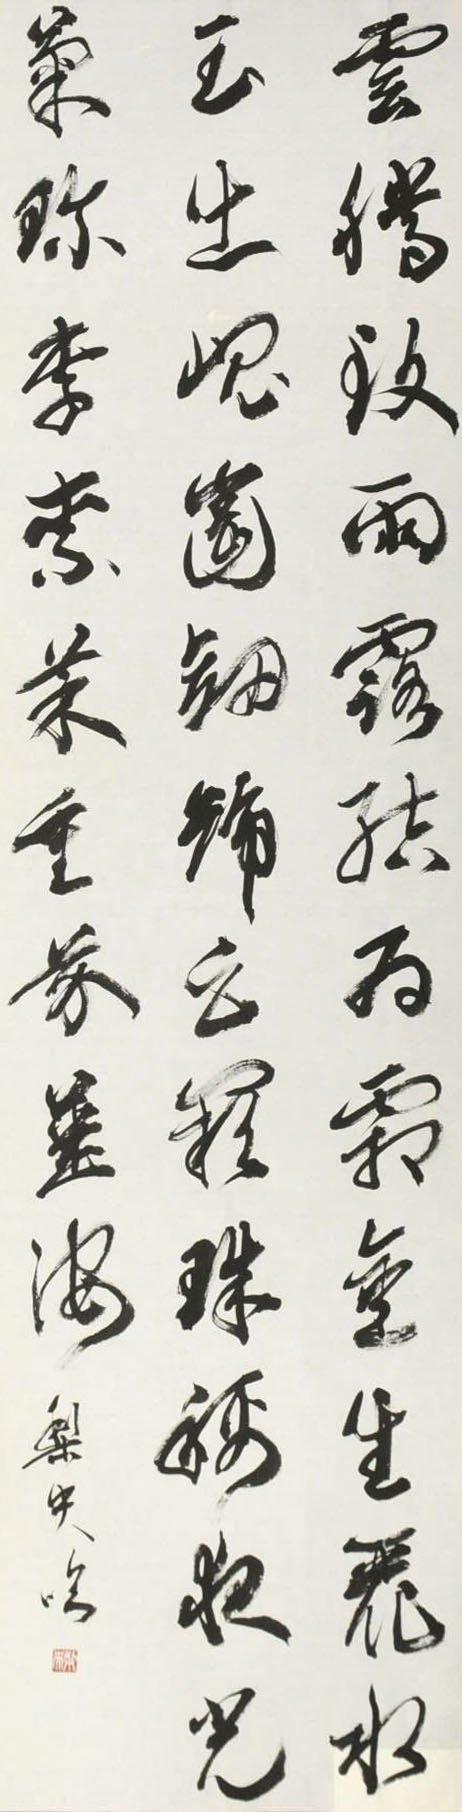 雲騰致雨露結為霜金生麗水
玉出崐崗劍號巨闕珠稱夜光
菓珍李柰菜重芥薑海